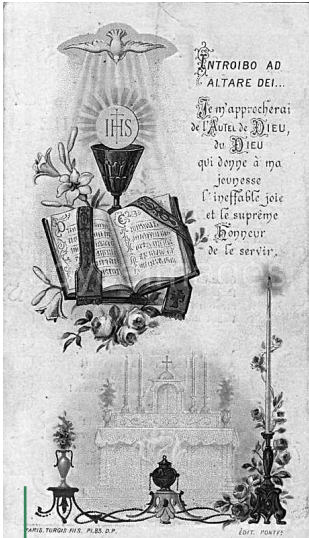 INTROIBO AD
ALTARE DEI...
Je m'approcherai
de l'AUTEL de DIEU,
du DIEU
qui donne à ma
jeunesse
l'ineffable joie
et le suprême
Honneur
de le servir.
IHS
PARIS. TURGIS FILS. PL.83. D.P.
ÉDIT. PONTFS